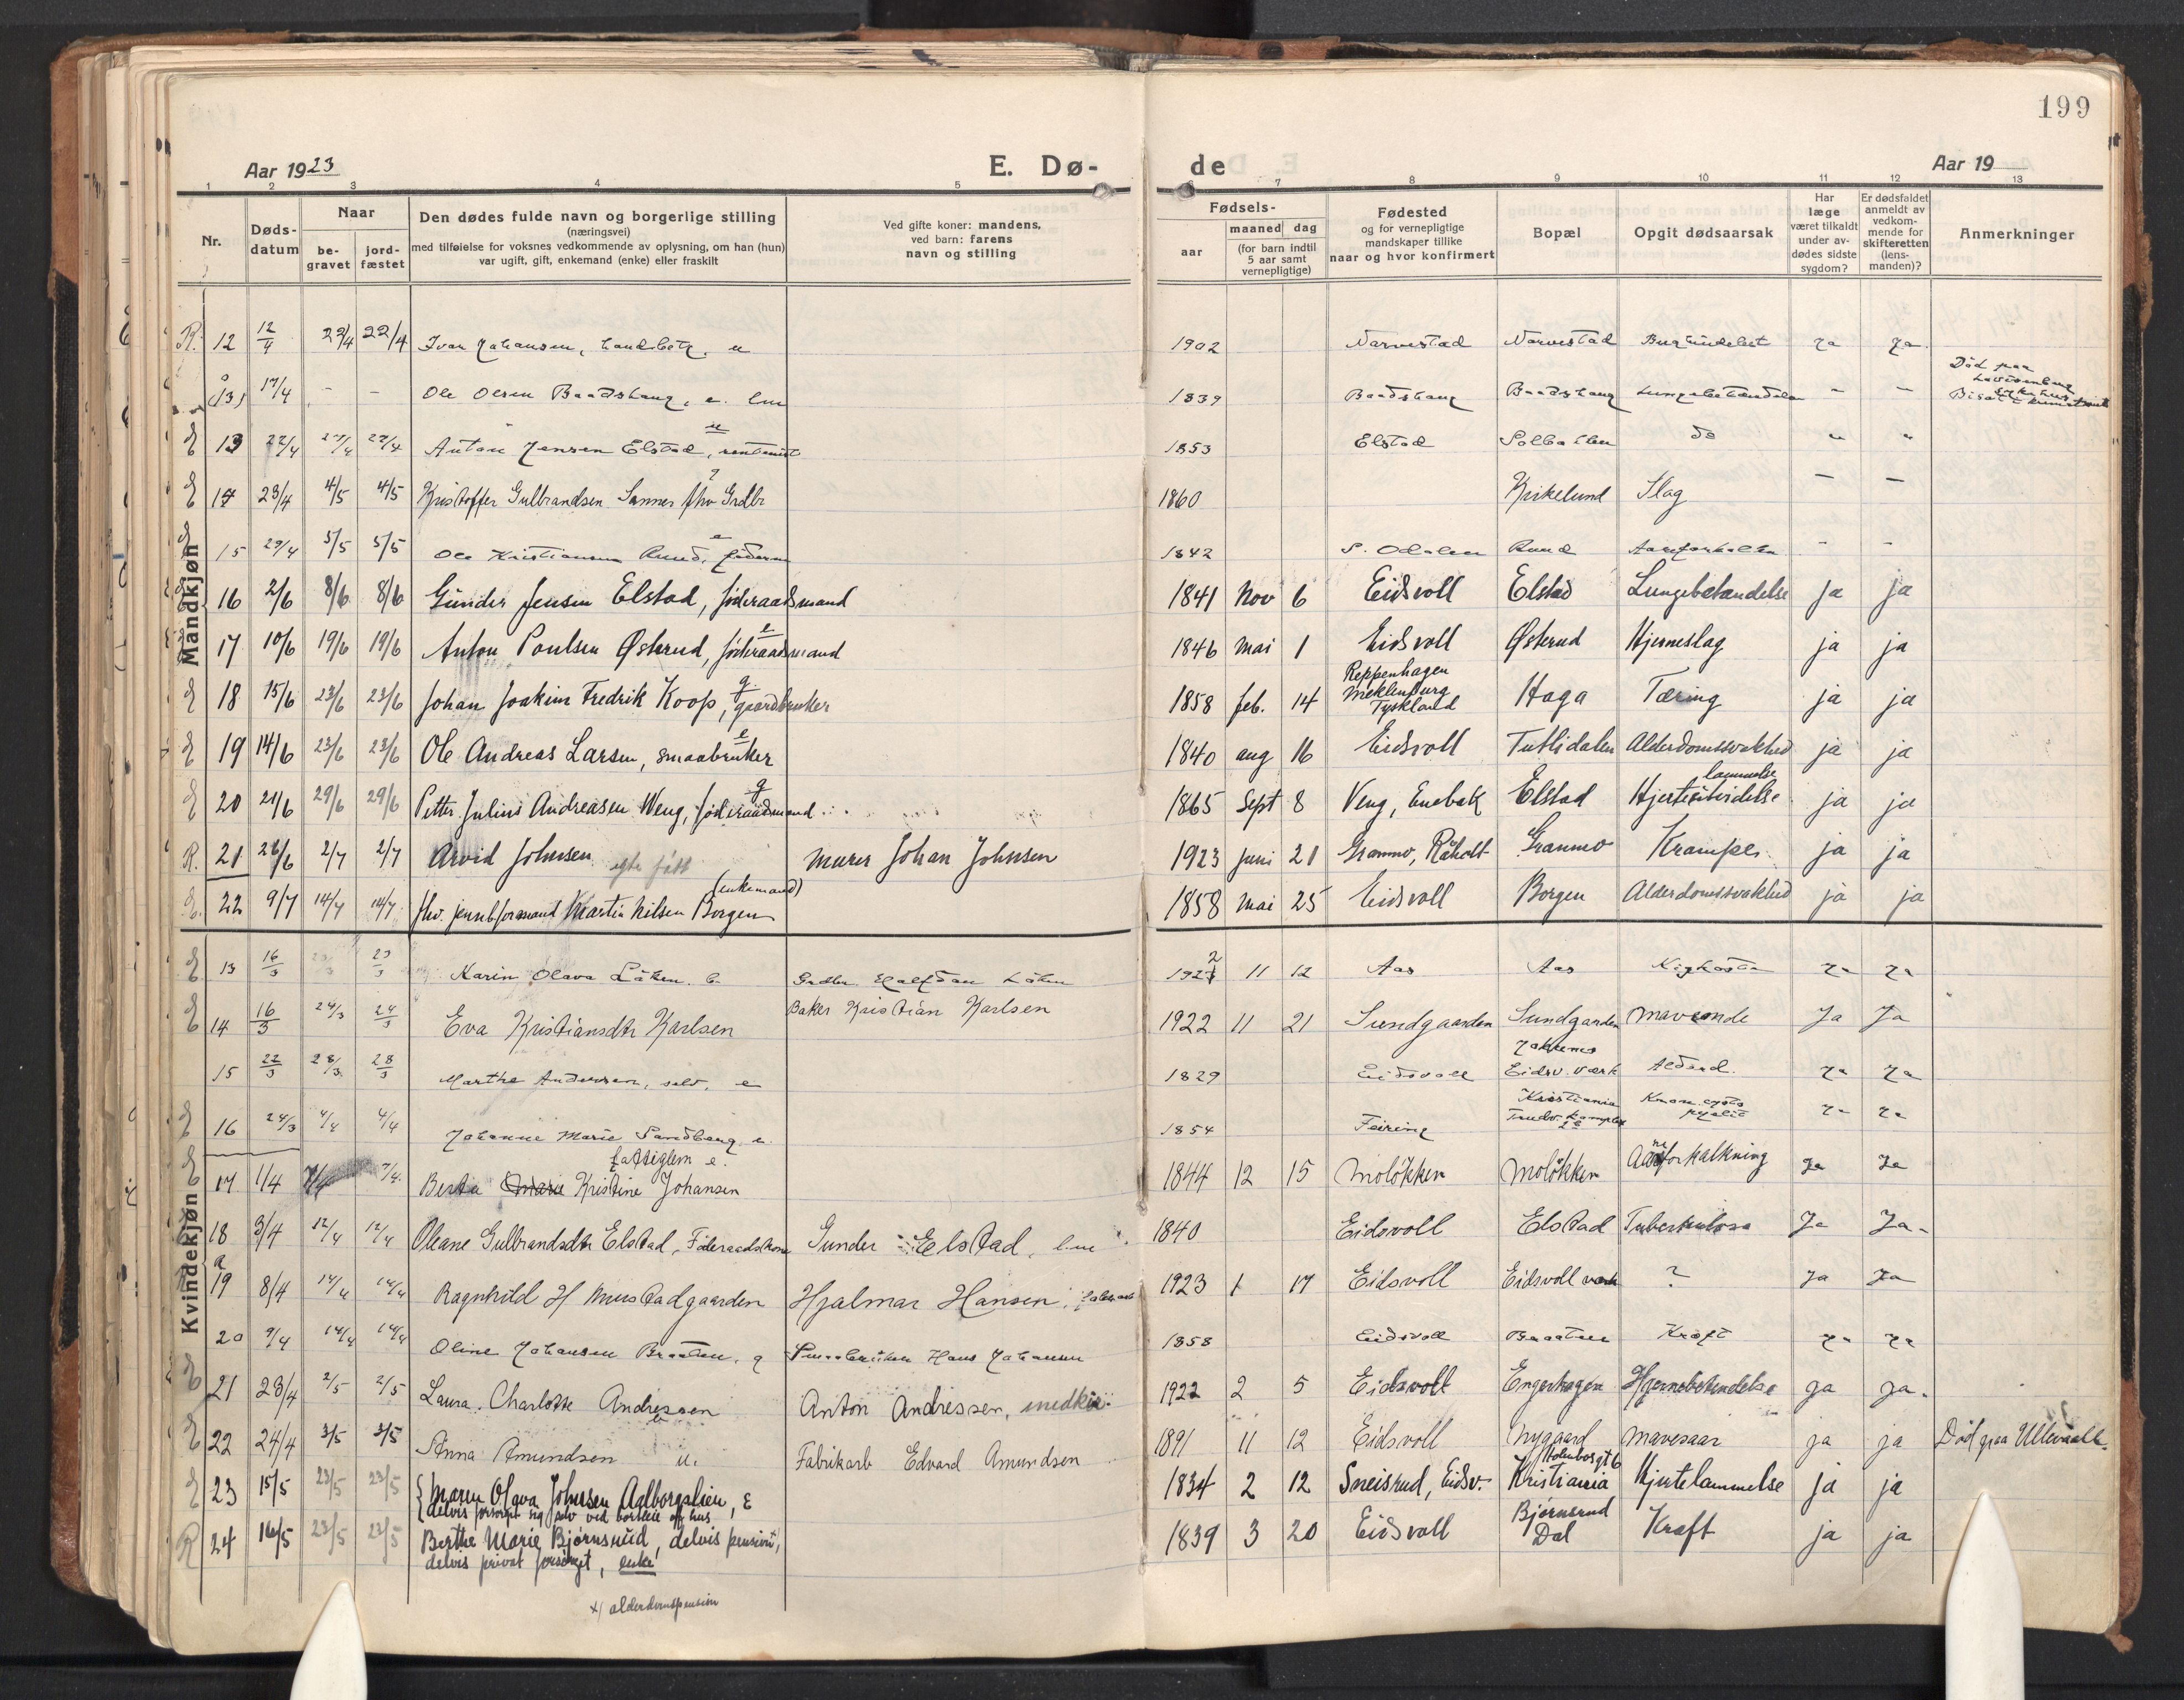 199
Aar 1923
E. Dø-
de
Aar 19
1 2 3 4 5 6 7 8 9 10 11 12 13
Nr.
Døds-
datum
Naar
be-
gravet
jord-
fæstet
Den dødes fulde navn og borgerlige stilling
(næringsvei)
med tilføielse for voksnes vedkommende av oplysning, om han (hun)
var ugift, gift, enkemand (enke) eller fraskilt
Ved gifte koner: mandens,
ved barn: farens
navn og stilling
Fødsels-
aar
maaned dag
(for barn indtil
5 aar samt
vernepligtige)
Fødested
og for vernepligtige
mandskaper tillike
naar og hvor konfirmert
Bopæl
Opgit dødsaarsak
Har
læge
været tilkaldt
under av-
dødes sidste
sygdom?
Er dødsfaldet
anmeldt av
vedkom-
mende for
skifteretten
(lens-
manden)?
Anmerkninger
Mandkjøn
R. 12 12/4 22/4 22/4 Ivar Johansen, u 1902 Narvestad Narvestad ja ja
(13) 17/4 - - Ole Olsen Baadshaug, e. 1839 Baadshaug Baadshaug - - Död paa
E 13 22/4 27/4 Anton Jensen Elstad, u 1853 Elstad do " "
E 14 23/4 4/5 4/5 Kristoffer Gulbrandsen Sannes fhv Grdbr ? 1860 Kirkelund Slag - -
15 29/4 5/5 5/5 Ole Kristiansen Ruud, e 1842 S. Odalen Ruud - -
16 2/6 8/6 8/6 Gunder Jensen Elstad, føderaadsmand 1841 Nov 6 Eidsvoll Elstad Lungebetændelse ja ja
17 10/6 19/6 19/6 Anton Poulsen Østerud, føderaadsmand e 1846 Mai 1 Eidsvoll Østerud Hjerneslag ja ja
E 18 15/6 23/6 23/6 Johan Joakim Fredrik Koop, gaardbruker g. 1858 feb. 14 Reppenhagen Meklenburg Tyskland Haga Tæring ja ja
E 19 14/6 23/6 23/6 Ole Andreas Larsen, smaabruker e 1840 aug 16 Eidsvoll Tutlidalen Alderdomssvakhed ja ja
E 20 21/6 29/6 29/6 Petter Julius Andreasen Weng, føderaadsmand g 1865 Sept 8 Veng, Enebak Elstad lammelse ja ja
R. 21 26/6 2/7 2/7 Arvid Johnsen Murer Johan Johnsen 1923 juni 21 Granmo, Råholt Granmo Kramper ja ja
E. 22 9/7 14/7 14/7 fhv. jernb.formand Martin Nilsen Borgen (enkemand) 1858 Mai 25 Eidsvoll Borgen Alderdomssvakhed ja ja
Kvindekjøn
E 13 16/3 23/3 Karin Olava Löken. b. Grdbr. Halfdan Löken 1922 11 12 Aas Aas Kighoste ja ja
E 14 16/3 24/3 24/3 Eva Kristiansdtr Karlsen Baker Kristian Karlsen 1922 11 21 Sundgaarden Sundgarden Maveonde Ja Ja
15 22/3 28/3 28/3 Marthe Andersen, selv. e 1829 Eidsvoll Eidsv. Værk Alderd. ja ja
E 16 24/3 4/4 4/4 Johanne Marie Sandberg e. 1854 Feiring Kristiania ja ja
E 17 1/4 7/4 7/4. Berta Marie Kristine Johansen fattiglem e. 1844 12 15 Moløkken Moløkken Aareforkalkning Ja Ja
18 3/4 12/4 12/4 Oleane Gulbrandsdtr Elstad, Føderaadskone Gunder Elstad, 1840 Eidsvoll Elstad Tuberkulose Ja Ja
19 a 8/4 14/4 14/4 Ragnhild H Mustadgaarden Hjalmar Hansen, 1923 1 17 Eidsvoll Eidsvoll værk ? Ja Ja
20 9/4 14/4 14/4 Oline Johansen Braaten, g Smaabruker Hans Johansen 1858 Eidsvoll Braaten Kræft ja ja
E 21 23/4 2/5 2/5 Laura Charlotte Andressen b Anton Andressen, snedker. 1922 2 5 Eidsvoll Engerhagen Hjernebetendelse ja ja.
E 22 24/4 3/5 3/5 Anna Amundsen u. Fabrikarb Edvard Amundsen 1891 11 12 Eidsvoll Nygaard Mavesaar ja ja Död paa Ullevaall.
E 23 15/5 23/5 23/5 Maren Olava Johnsen Aalborgslien, E
delvis forsørget sig selv ved bortleie af hus 1834 2 12 Sneisrud, Eidsv. Holmborgt 6 Kristiania Hjertelammelse ja ja
R 24 16/5 23/5 23/5 Berthe Marie Bjørnsrud, delvis pension x),
delvis privat forsørget, enke 1839 3 20 Eidsvoll Bjørnsrud Dal Kræft ja ja
x) alderdomspension